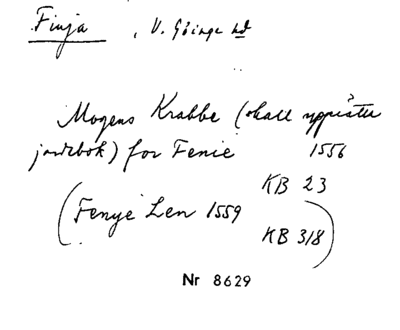 Finja, V. Göinge hd
Mogens Krabbe (skall uppsätta
jordebok) for Fenie 1556
KB 23
(Fenye Len 1559
KB 318)
Nr 8629